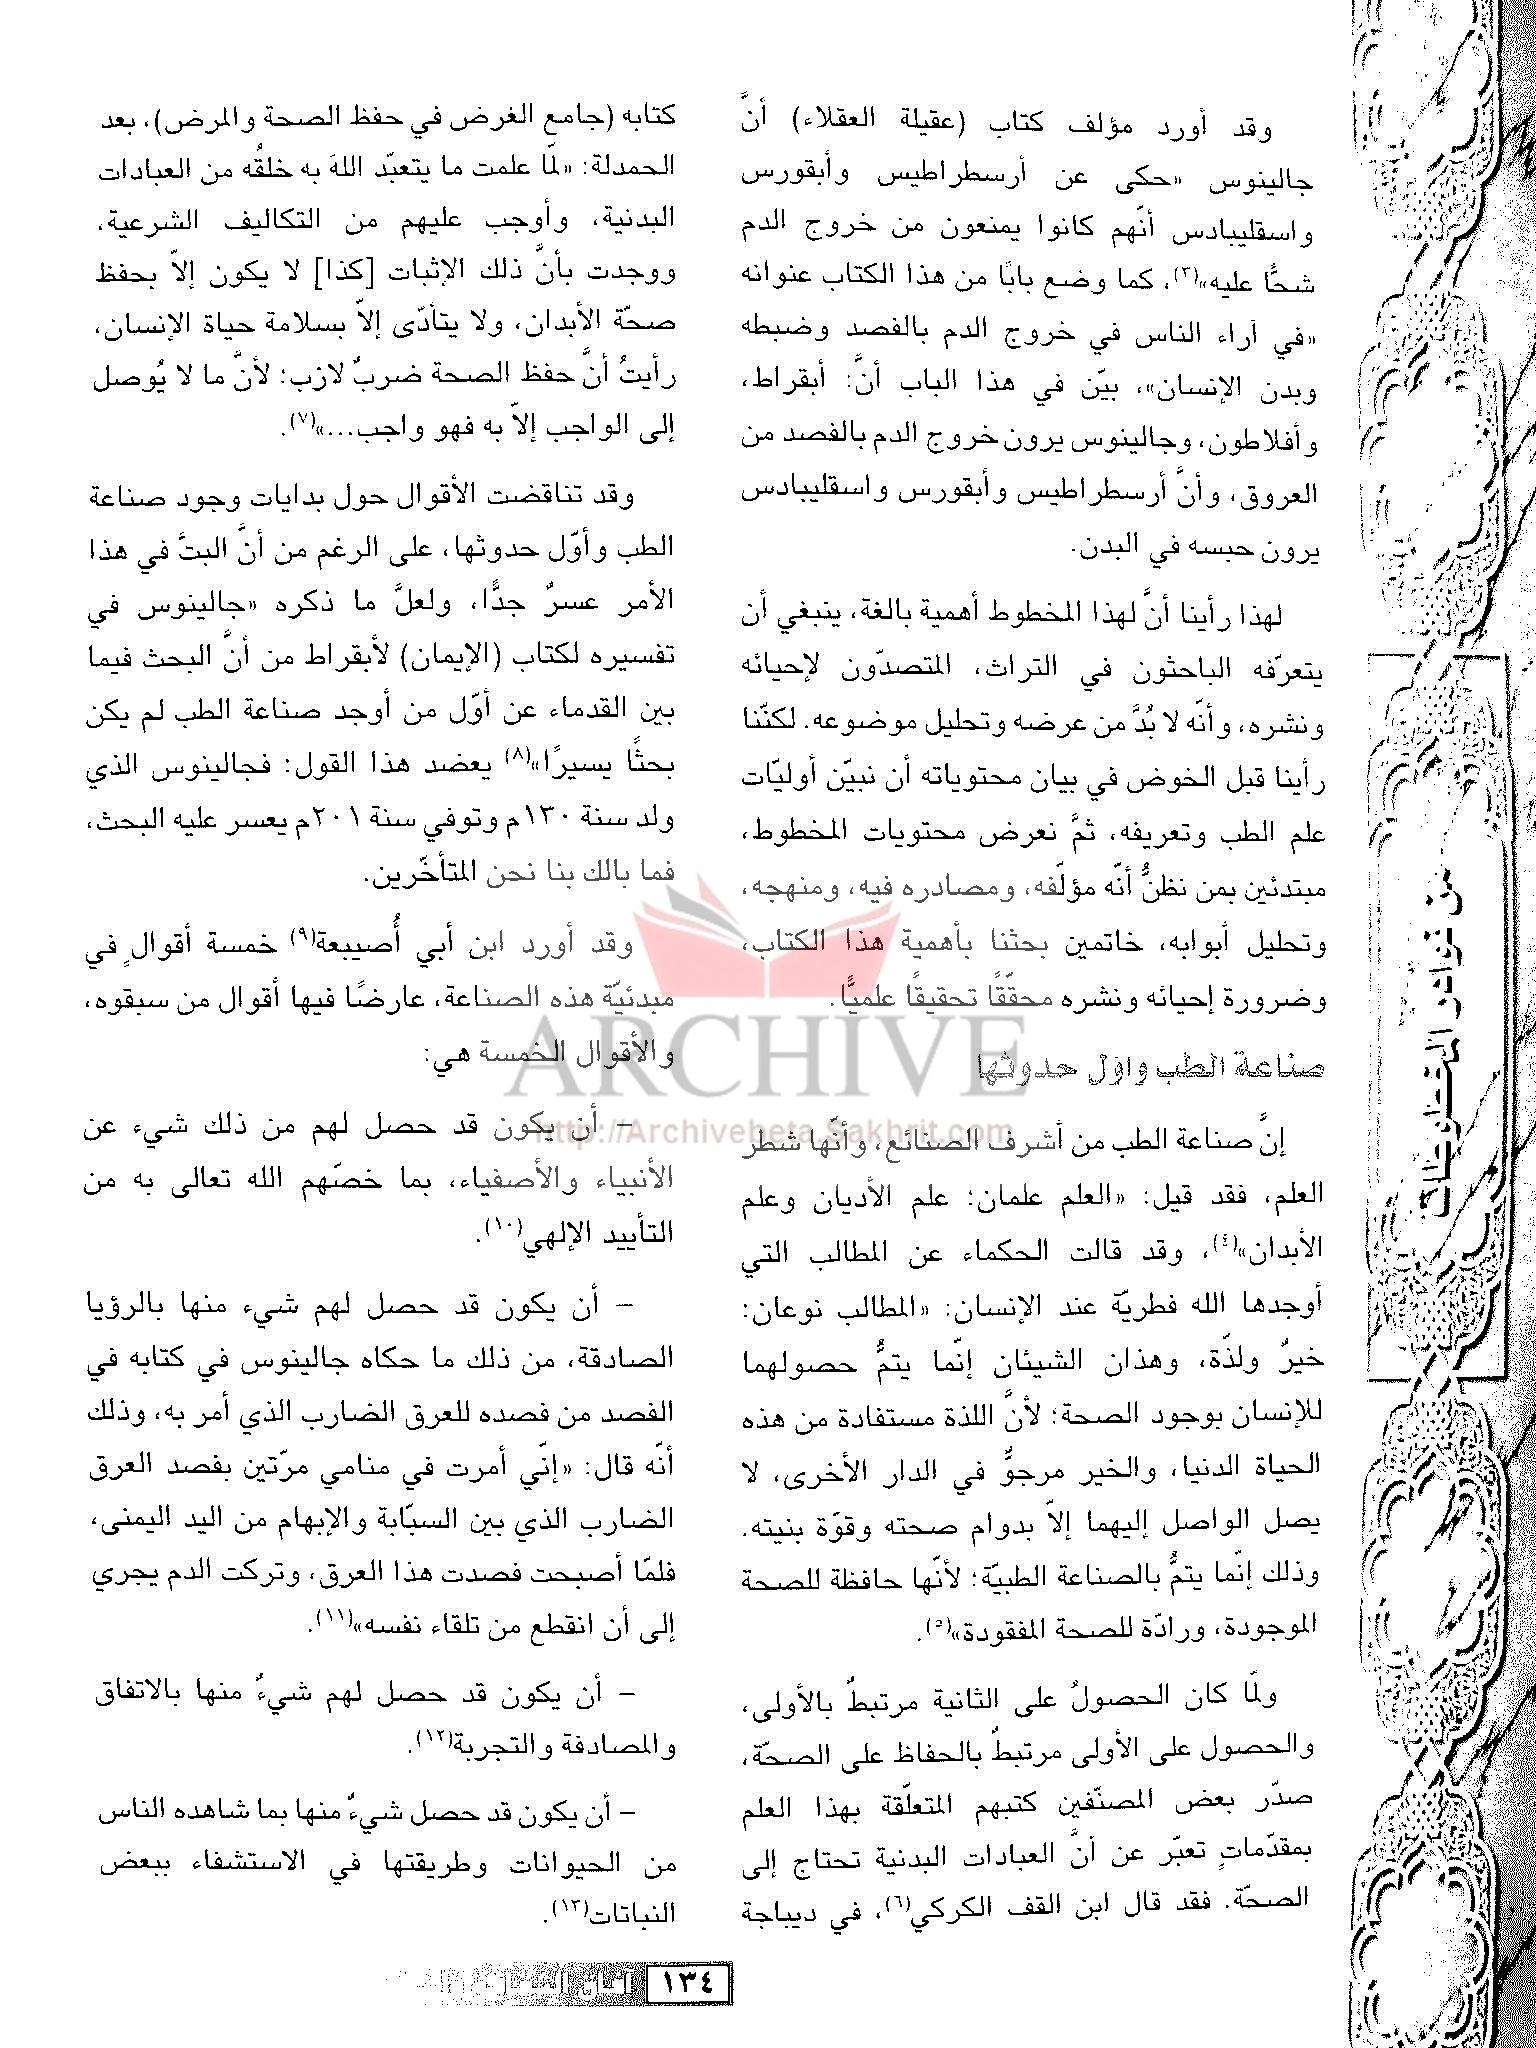 وقد أورد مؤلف كتاب (عقيلة العقلاء) أنَّ
جالينوس «حكى عن أرسطراطيس وأبقورس
واسقليبادس أنّهم كانوا يمنعون من خروج الدم
شحًّا عليه»(٣)، كما وضع بابًا من هذا الكتاب عنوانه
«في آراء الناس في خروج الدم بالفصد وضبطه
وبدن الإنسان»، بيّن في هذا الباب أنَّ: أبقراط،
وأفلاطون، وجالينوس يرون خروج الدم بالفصد من
العروق، وأنَّ أرسطراطيس وأبقورس واسقليبادس
يرون حبسه في البدن.
لهذا رأينا أنَّ لهذا المخطوط أهمية بالغة، ينبغي أن
يتعرّفه الباحثون في التراث، المتصدّون لإحيائه
ونشره، وأنّه لا بُدَّ من عرضه وتحليل موضوعه. لكنّنا
رأينا قبل الخوض في بيان محتوياته أن نبيّن أوليّات
علم الطب وتعريفه، ثمَّ نعرض محتويات المخطوط،
مبتدئين بمن نظنُّ أنّه مؤلّفه، ومصادره فيه، ومنهجه،
وتحليل أبوابه، خاتمين بحثنا بأهمية هذا الكتاب،
وضرورة إحيائه ونشره محقّقًا تحقيقًا علميًّا.
صناعة الطب وأول حدوثها
إنَّ صناعة الطب من أشرف الصنائع، وأنّها شطر
العلم، فقد قيل: «العلم علمان؛ علم الأديان وعلم
الأبدان»(٤)، وقد قالت الحكماء عن المطالب التي
أوجدها الله فطريّة عند الإنسان: «المطالب نوعان:
خيرٌ ولذّة، وهذان الشيئان إنّما يتمُّ حصولهما
للإنسان بوجود الصحة؛ لأنَّ اللذة مستفادة من هذه
الحياة الدنيا، والخير مرجوٌّ في الدار الأخرى، لا
يصل الواصل إليهما إلاّ بدوام صحته وقوّة بنيته.
وذلك إنّما يتمُّ بالصناعة الطبيّة؛ لأنّها حافظة للصحة
الموجودة، ورادّة للصحة المفقودة»(٥).
ولمّا كان الحصولُ على الثانية مرتبطٌ بالأولى،
والحصول على الأولى مرتبطٌ بالحفاظ على الصحّة،
صدّر بعض المصنّفين كتبهم المتعلّقة بهذا العلم
بمقدّماتٍ تعبّر عن أنَّ العبادات البدنية تحتاج إلى
الصحّة. فقد قال ابن القف الكركي(٦)، في ديباجة
كتابه (جامع الغرض في حفظ الصحة والمرض)، بعد
الحمدلة: «لمّا علمت ما يتعبّد اللهَ به خلقُه من العبادات
البدنية، وأوجب عليهم من التكاليف الشرعية،
ووجدت بأنَّ ذلك الإثبات [كذا] لا يكون إلاّ بحفظ
صحّة الأبدان، ولا يتأدّى إلاّ بسلامة حياة الإنسان،
رأيتُ أنَّ حفظ الصحة ضربٌ لازب؛ لأنَّ ما لا يُوصل
إلى الواجب إلاّ به فهو واجب...»(٧).
وقد تناقضت الأقوال حول بدايات وجود صناعة
الطب وأوّل حدوثها، على الرغم من أنَّ البتَّ في هذا
الأمر عسرٌ جدًّا، ولعلَّ ما ذكره «جالينوس في
تفسيره لكتاب (الإيمان) لأبقراط من أنَّ البحث فيما
بين القدماء عن أوّل من أوجد صناعة الطب لم يكن
بحثًا يسيرًا»(٨) يعضد هذا القول: فجالينوس الذي
ولد سنة ١٣٠م وتوفي سنة ٢٠١م يعسر عليه البحث،
فما بالك بنا نحن المتأخّرين.
وقد أورد ابن أبي أُصيبعة(٩) خمسة أقوالٍ في
مبدئيّة هذه الصناعة، عارضًا فيها أقوال من سبقوه،
والأقوال الخمسة هي:
– أن يكون قد حصل لهم من ذلك شيء عن
الأنبياء والأصفياء، بما خصّهم الله تعالى به من
التأييد الإلهي(١٠).
– أن يكون قد حصل لهم شيء منها بالرؤيا
الصادقة، من ذلك ما حكاه جالينوس في كتابه في
الفصد من فصده للعرق الضارب الذي أمر به، وذلك
أنّه قال: «إنّي أمرت في منامي مرّتين بفصد العرق
الضارب الذي بين السبّابة والإبهام من اليد اليمنى،
فلمّا أصبحت فصدت هذا العرق، وتركت الدم يجري
إلى أن انقطع من تلقاء نفسه»(١١).
– أن يكون قد حصل لهم شيءٌ منها بالاتفاق
والمصادفة والتجربة(١٢).
– أن يكون قد حصل شيءٌ منها بما شاهده الناس
من الحيوانات وطريقتها في الاستشفاء ببعض
النباتات(١٣).
من نوادر المخطوطات
ARCHIVE
http://Archivebeta.Sakhrit.com
١٣٤